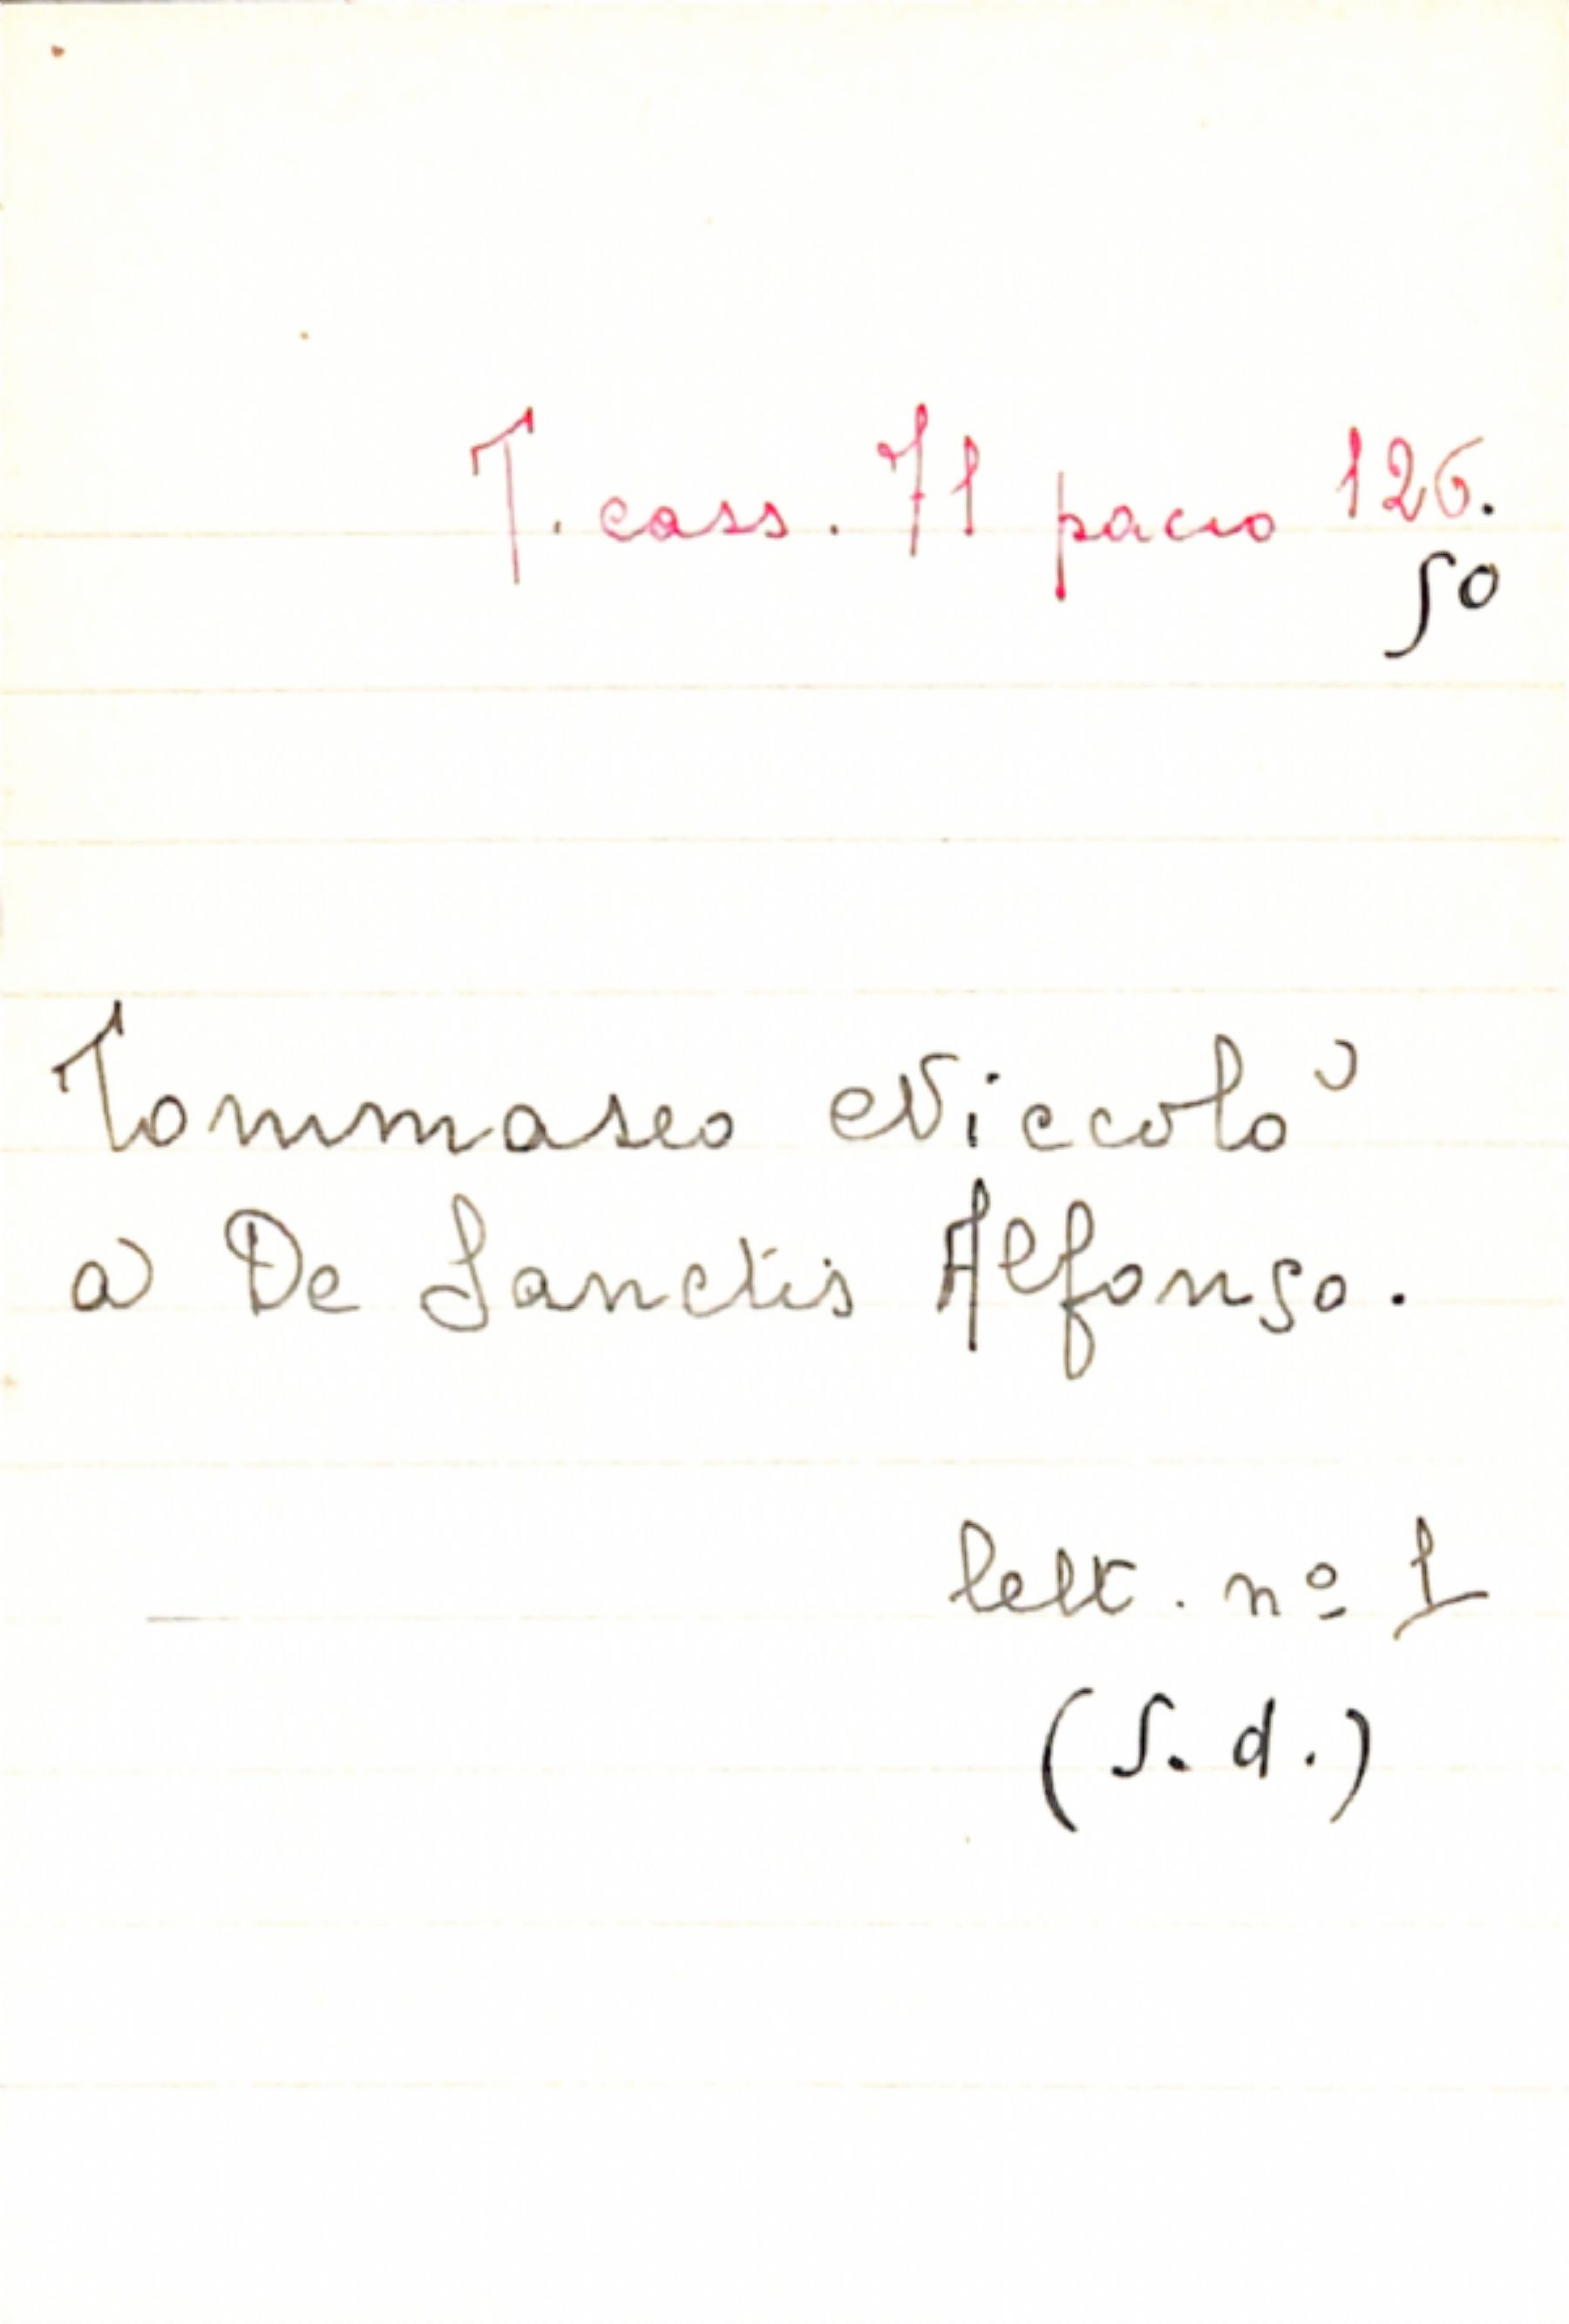 T. cass. 71 pacco 126.
50
Tommaseo Niccolò
a De Sanctis Alfonso.
lett. nº 1
(S. d.)